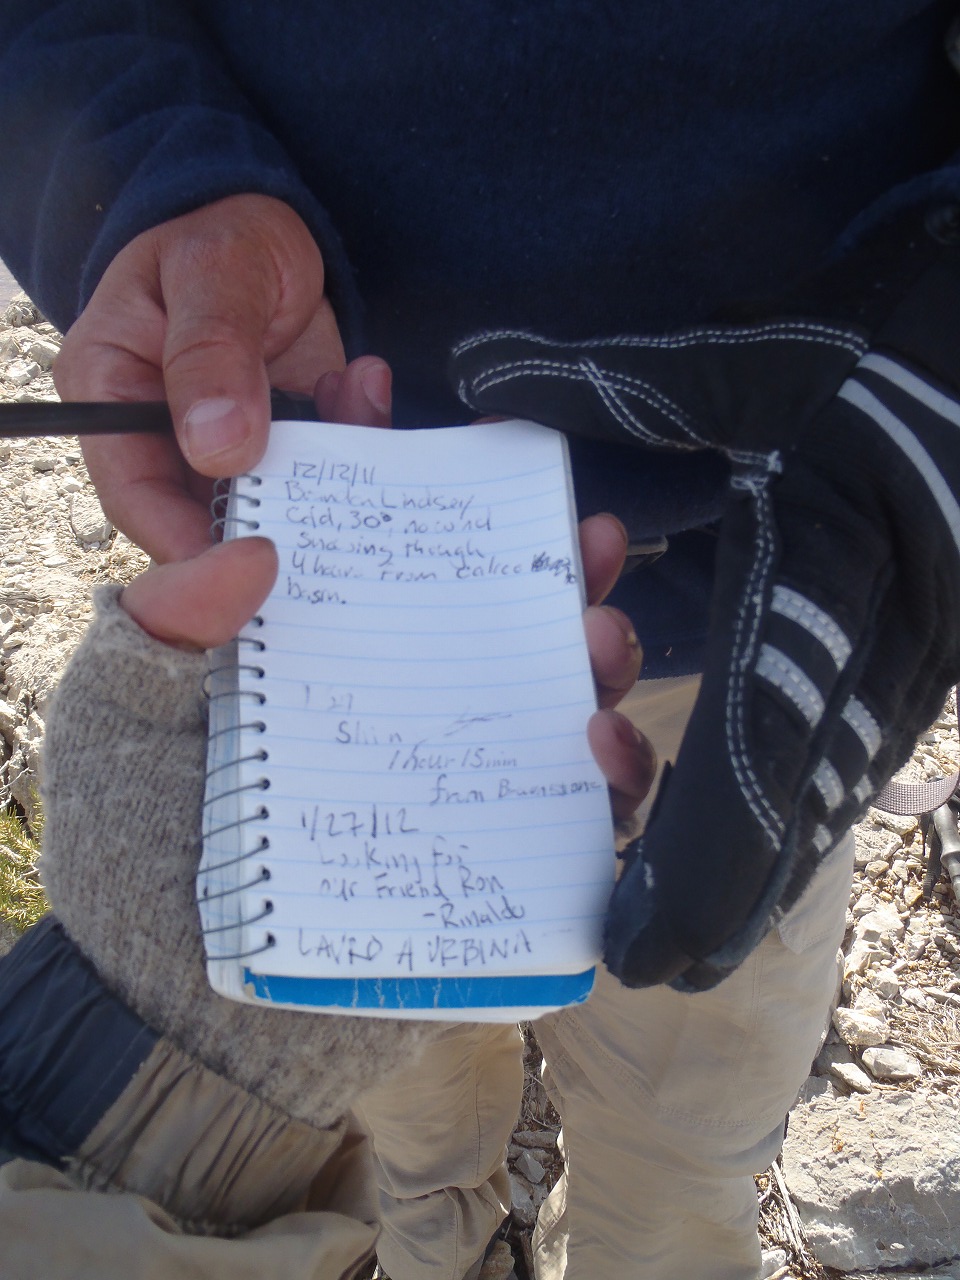 12/12/11
Brandon Lindsey
Cold, 30°, no wind
snowing though
4 hours from calico
basin.
1 hour 15 min
from
1/27/12
Looking for
our Friend Ron
-Rinaldo
LAURO A URBINA